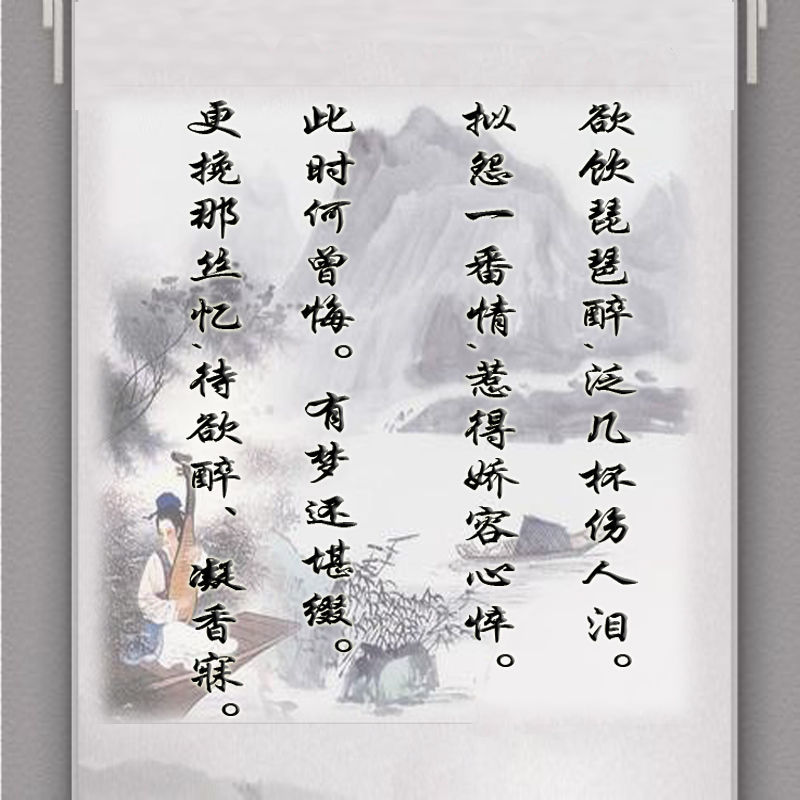 欲饮琵琶醉、泛几杯伤人泪。
拟怨一番情、惹得娇容心悴。
此时何曾悔。有梦还堪缀。
更挽那丝忆、待欲醉、凝香寐。